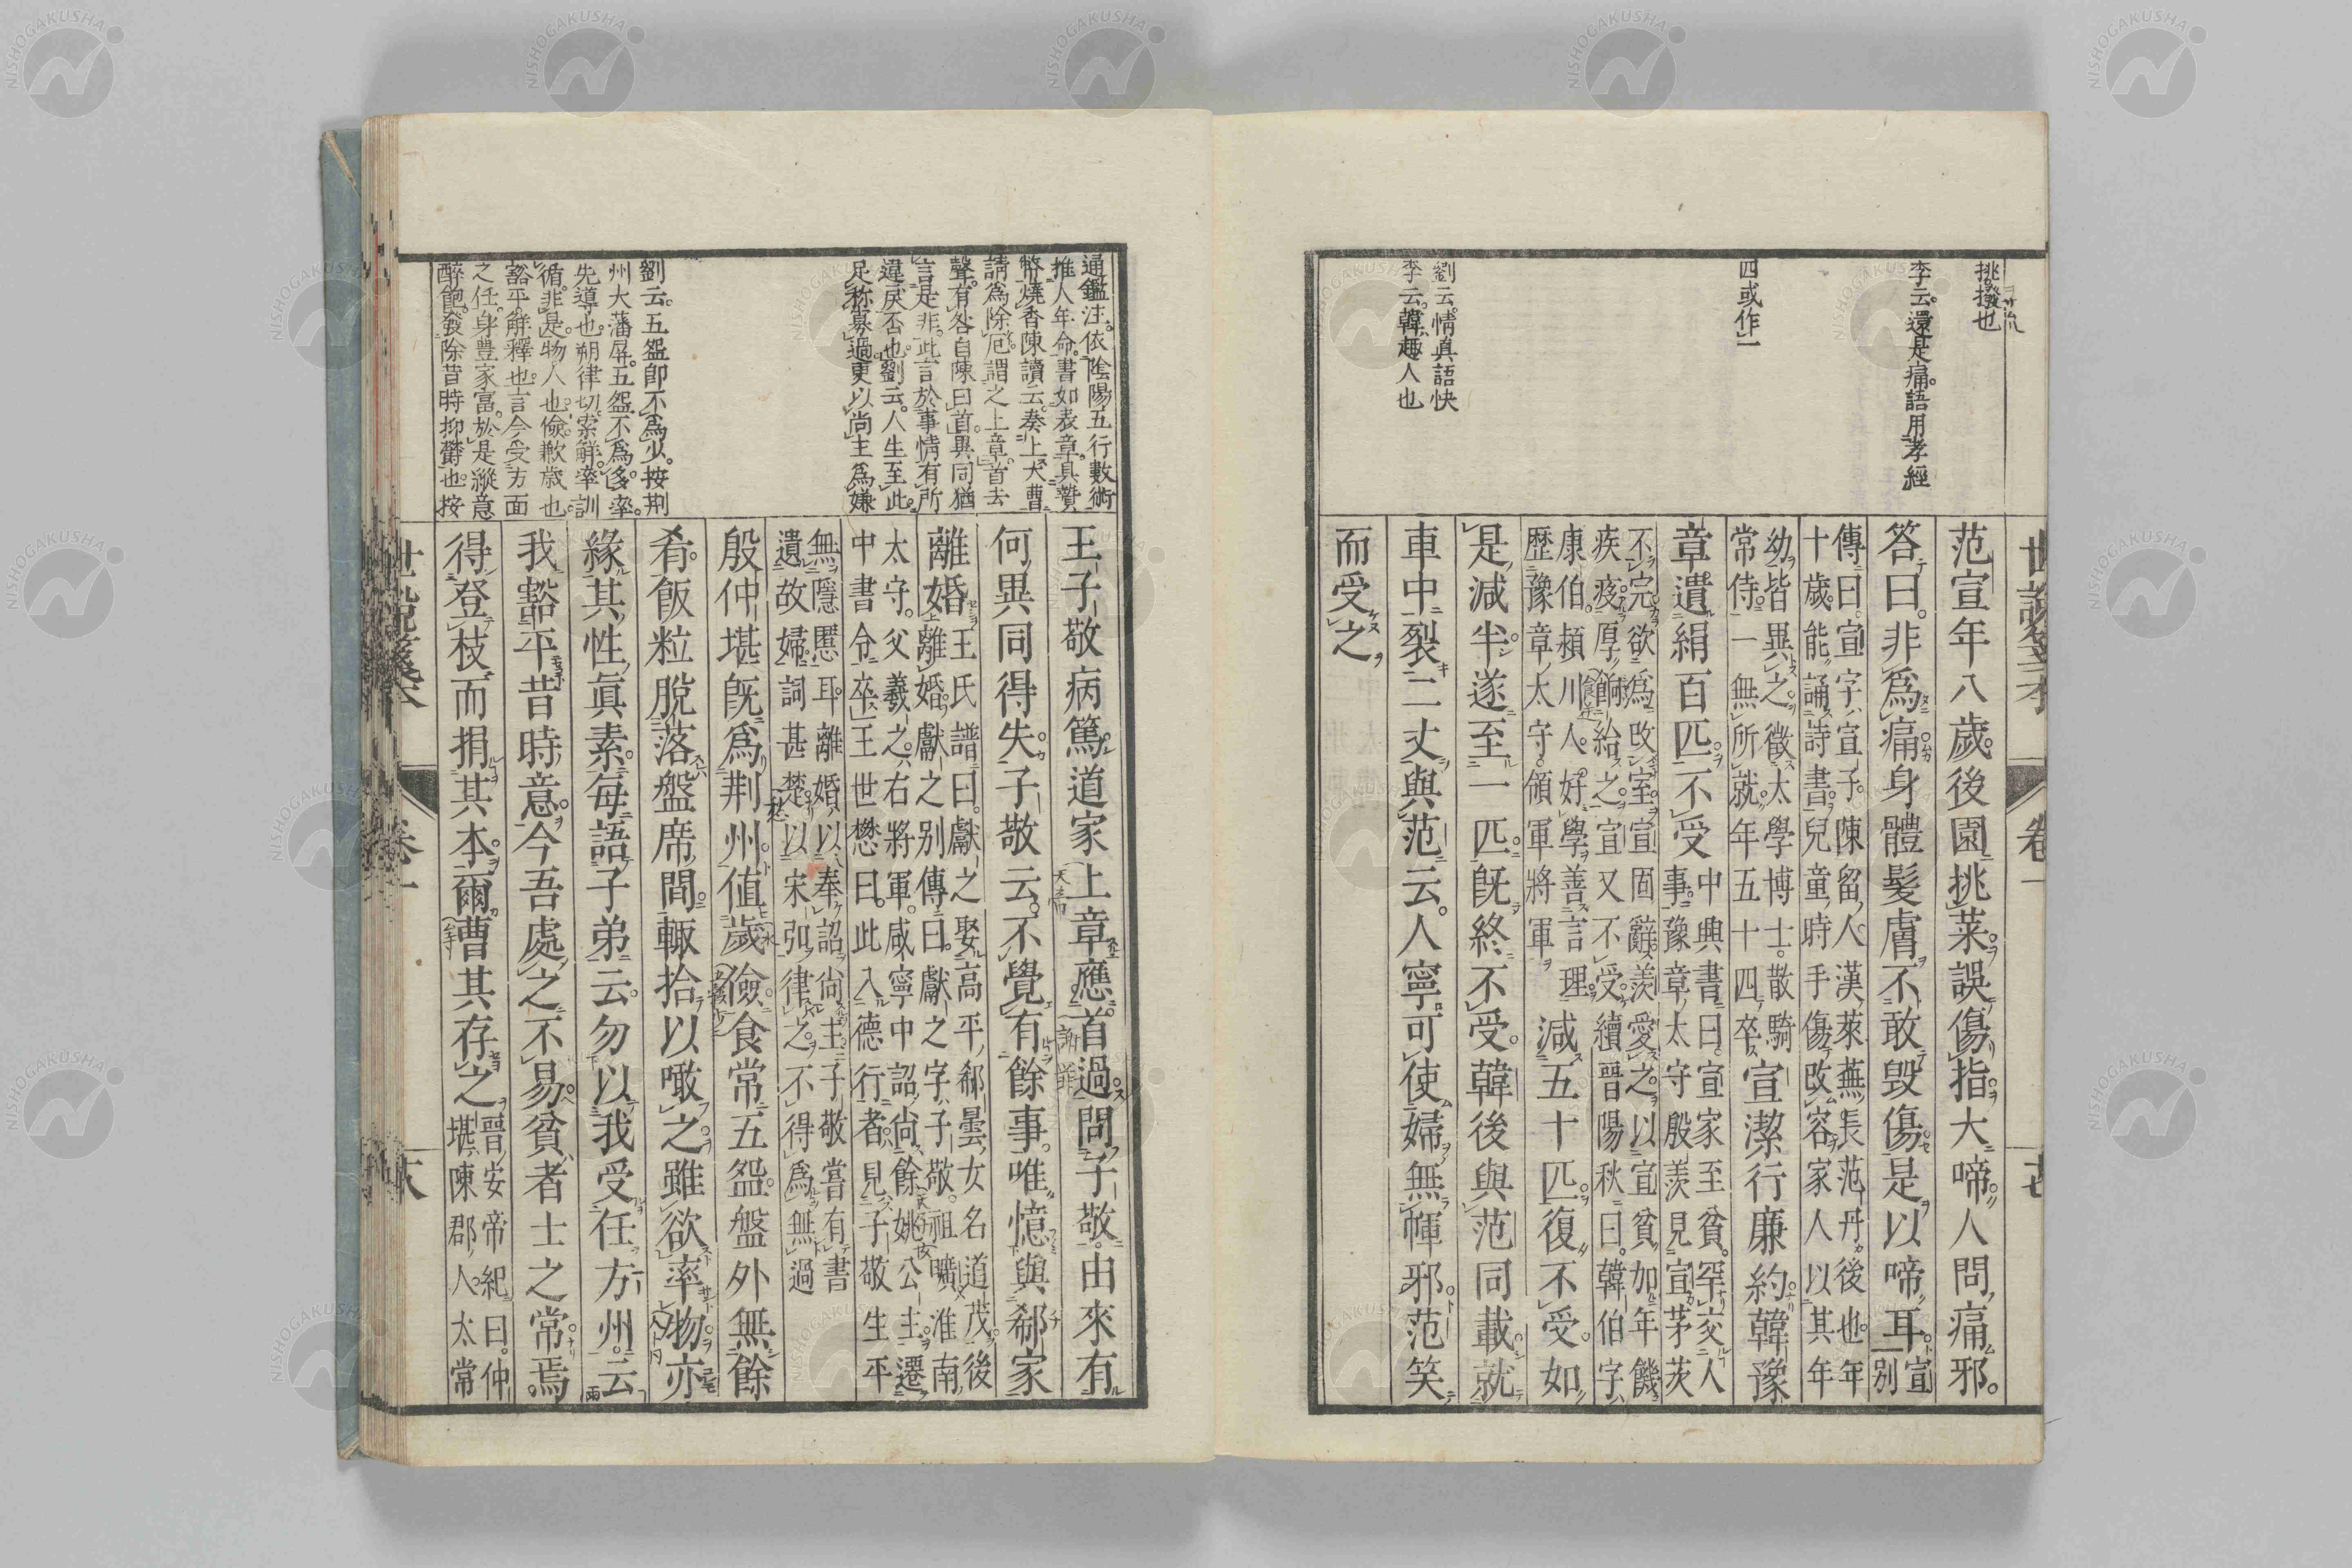 世說箋本 卷一
挑撥也
李云。還是痛。語用孝經
四或作一
劉云。情真語快
李云。韓趣人也
范宣年八歲。後園挑菜。誤傷指。大啼。人問痛邪。
答曰。非爲痛。身體髮膚。不敢毀傷。是以啼耳。宣別
傳曰。宣字宣子。陳留人。漢萊蕪長范丹後也。年
十歲。能誦詩書。兒童時。手傷改容。家人以其年
幼。皆異之。徵太學博士。散騎
常侍。一無所就。年五十四卒
宣潔行廉約。韓豫
章遺絹百匹。不受
中興書曰。宣家至貧。罕交人
事。豫章太守殷羨見宣茅茨
不完。欲爲改室。宣固辭。羨愛之。以宣貧。加年饑
疾疫。厚餉給之。宣又不受。續晉陽秋曰。韓伯字
康伯。潁川人。好學。善言理
歷豫章太守。領軍將軍
減五十匹。復不受。如
是減半。遂至一匹。旣終不受。韓後與范同載。就
車中裂二丈與范云。人寧可使婦無褌邪。范笑
而受之
通鑑注。依陰陽五行數術
推人年命。書如表章。具贄
幣。燒香陳讀云。奏上天曹
請爲除厄。謂之上章。首去
聲。有咎自陳曰首。異同猶
言是非。此言於事情有所
違戾否也。劉云。人生至此。
足称寡過。更以尚主爲嫌
劉云。五盌卽不爲少。按荆
州大藩屏。五盌不爲多。率。
先導也。朔律切。索解。率訓
循。非是。物人也。儉歉歲也
豁平。解釋也。言今受方面
之任。身豊家富。於是縱意
醉飽。發除昔時抑欝也。按
王子敬病篤。道家上章應首過。問子敬。由來有
何異同得失。子敬云。不覺有餘事。唯憶與郗家
離婚
王氏譜曰。獻之娶高平郗曇女名道茂。後
離婚。獻之別傳曰。獻之字子敬。祖曠淮南
太守。父羲之右將軍。咸寧中。詔尚餘姚公主。遷
中書令卒。王世懋曰。此入德行者。見子敬生平
無隱慝耳。離婚以奉詔尚主。子敬嘗有書
遺故婦。詞甚楚。以宋弘律之。不得爲無過
殷仲堪旣爲荆州。値歲儉。食常五盌盤。外無餘
肴。飯粒脫落盤席間。輒拾以噉之。雖欲率物。亦
緣其性眞素。每語子弟云。勿以我受任方州云
我豁平昔時意。今吾處之不易。貧者士之常。焉
得登枝而捐其本。爾曹其存之
晉安帝紀曰。仲
堪陳郡人。太常